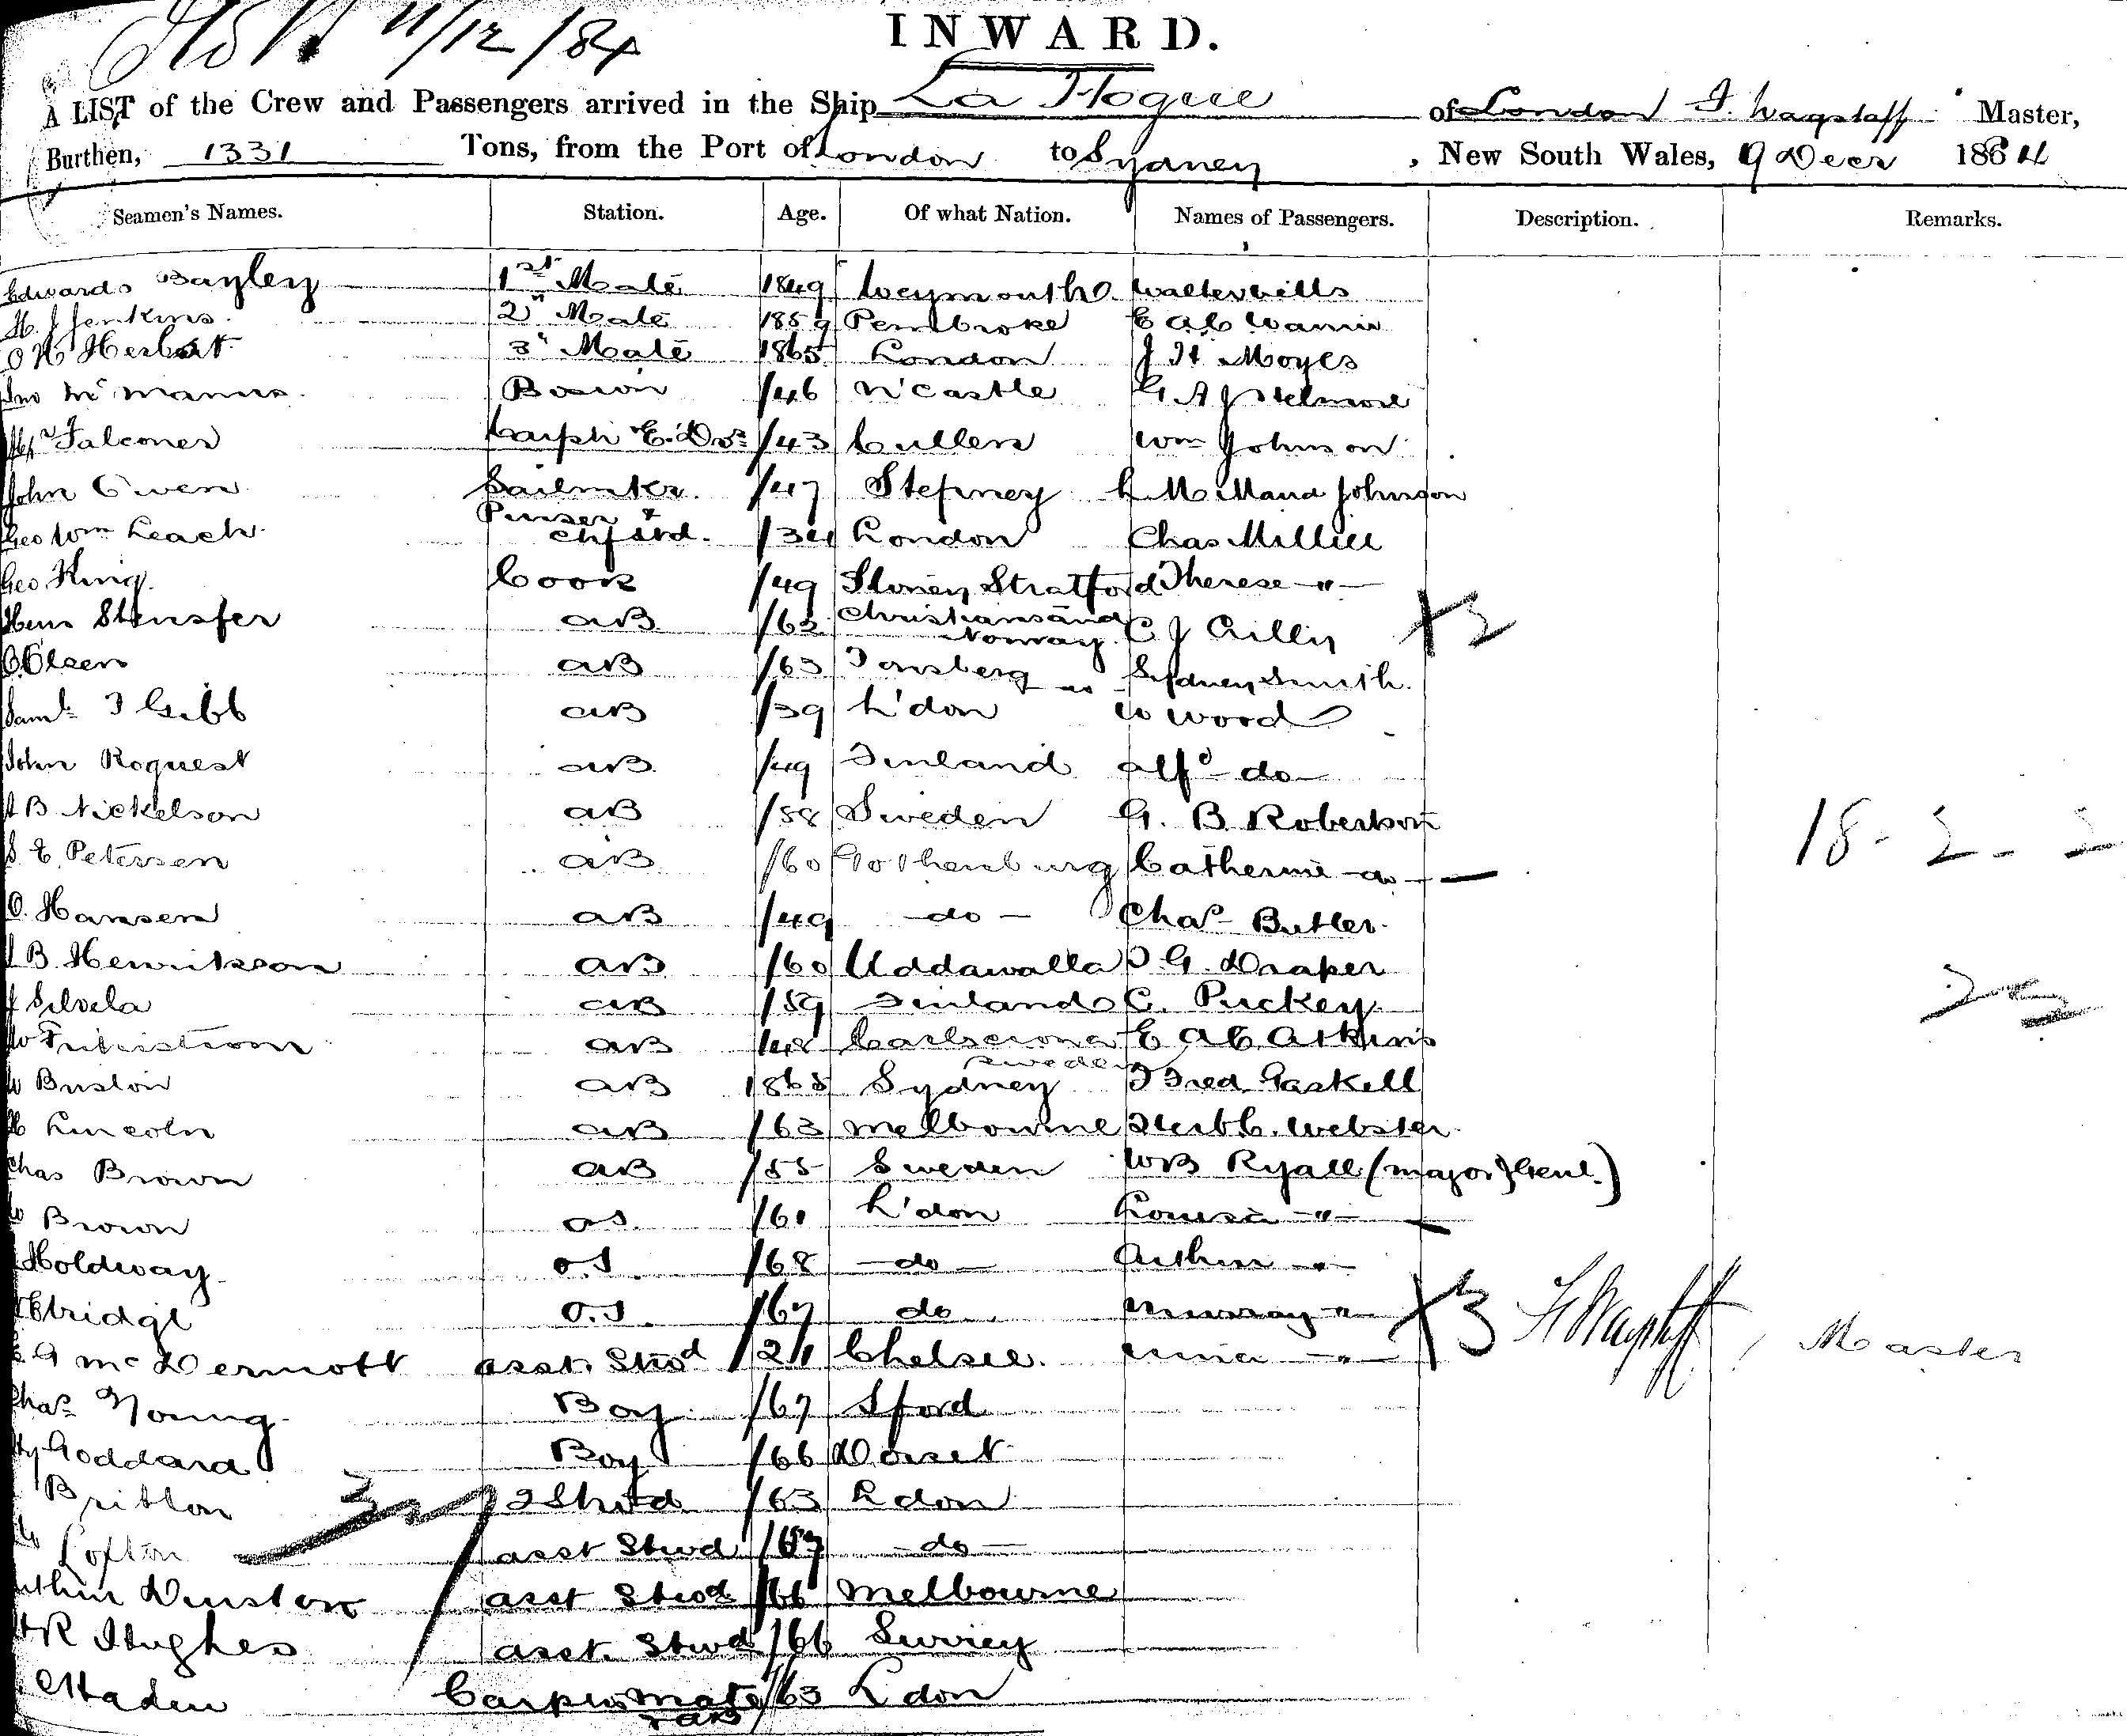 11/12/84
INWARD.
A LIST of the Crew and Passengers arrived in the Ship La Hogue of London F. Wagstaff Master,
Burthen, 1331 Tons, from the Port of London to Sydney, New South Wales, 9 Decr 1884
Seamen's Names. Station. Age. Of what Nation. Names of Passengers. Description. Remarks.
Edwards Bayley 1st Mate 1849 Weymouth Walter Wills
H. J Jenkins 2" Mate 1859 Pembroke E A C
O H Herbert 3" Mate 1865 London J H Moyes
Jno McManus Bosun /46 N'Castle G. A J
Alexr Falconer Carptr /43 Cullen Wm Johnson
John Owen Sailmkr. /47 Stepney Maud Johnson
Geo Wm Leach Purser & Chf Strd. /34 London Chas Millill
Geo. King Cook /49 Stoney Stratford Therese "
Hans AB /62 Christiansand Norway C J
O. Olsen AB /63 Tonsberg do Sydney Smith
Saml J Gibb AB /39 L'don W Wood
John Roquest AB /49 Finland Alfd do
B Nickelson AB /58 Sweden G. B. Robertson
S. E. Petersen AB /60 Gothenburg Catherine do
O. Hansen AB /49 do Chas Butler
B. Henrikson AB /60 Uddawalla G. Draper
J Silvela AB /59 Finland C. Puckey
W AB /48 Carlscrona Sweden E A C Atkins
W Buston AB 1865 Sydney Fred Gaskell
Lincoln AB /63 Melbourne Herbt C. Webster
Chas Brown AB /55 Sweden WB Ryall (Major Genl.)
W Brown /61 L'don Louisa "
Holdway O.S /68 do Arthur "
Etridge O.S. /67 do Murray "
G McDermott Asst. Stwd /24 Chelsea "
X3 Master
Chas Young Boy /67 Ilford
Hy Goddard Boy /66 Dorset
Britton 2 Stwd /63 L'don
Lofton Asst Stwd do
Arthur Dunston Asst Stwd /66 Melbourne
H R Hughes Asst. Stwd /66 Surrey
Haden Carps Mate & AB /63 L'don